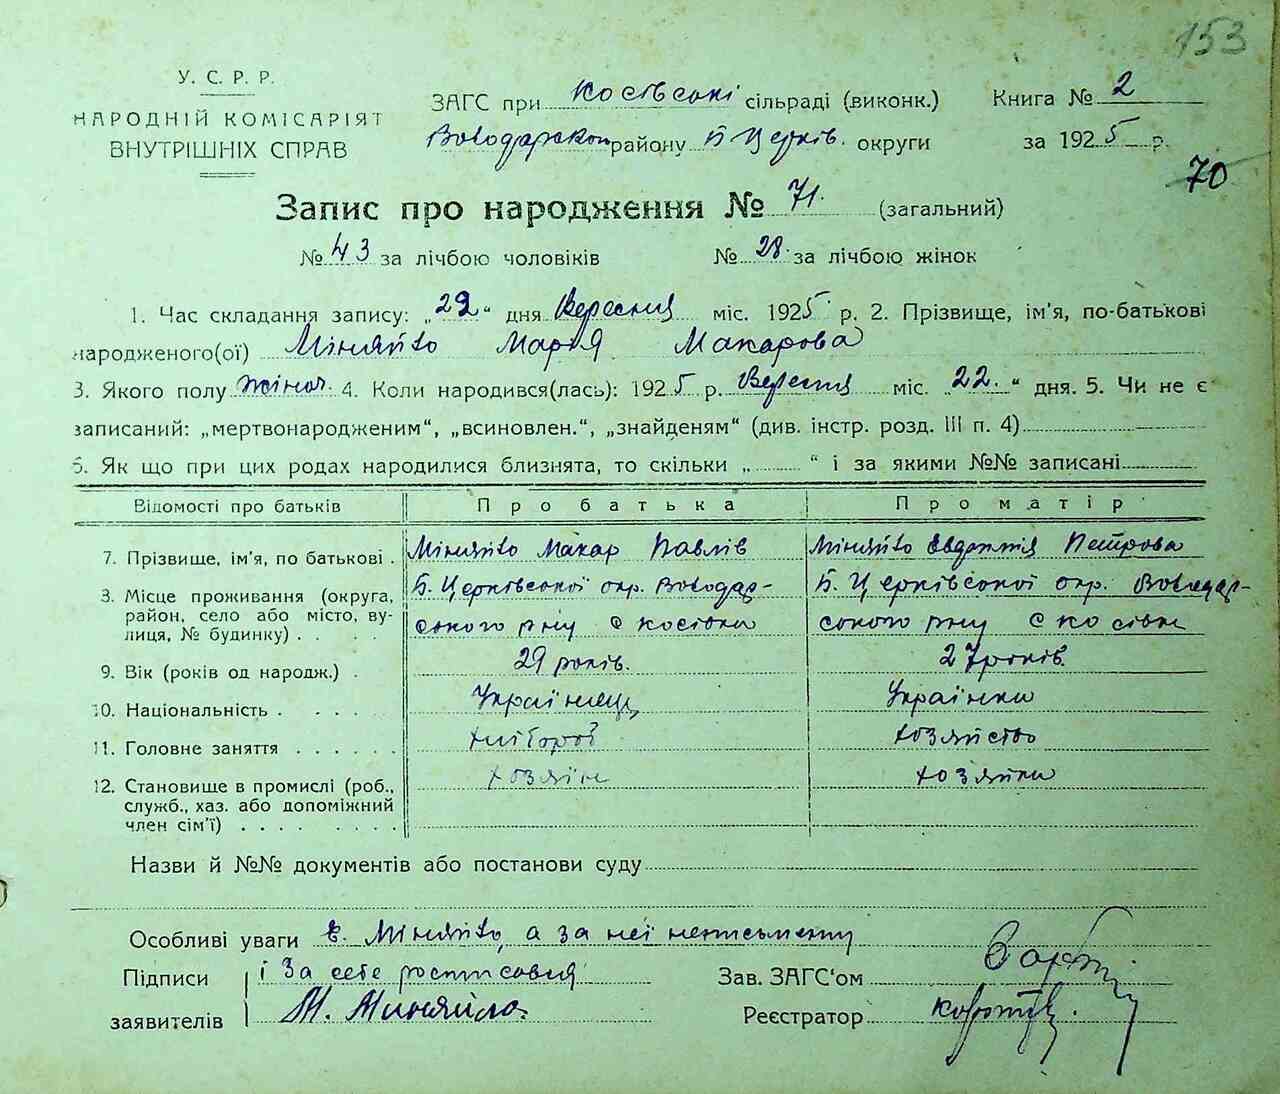 153
У. С. Р. Р.
НАРОДНІЙ КОМІСАРІЯТ
ВНУТРІШНІХ СПРАВ
ЗАГС при Косівські сільраді (виконк.) Книга № 2
Володарском району Б Церків. округи за 1925 р.
70
Запис про народження № 71. (загальний)
№ 43 за лічбою чоловіків № 28. за лічбою жінок
1. Час складання запису: „29“ дня Вересня міс. 1925 р. 2. Прізвище, ім'я, по-батькові
народженого(ої) Міняйло Мария Макарова
3. Якого полу жіноч. 4. Коли народився(лась): 1925 р. Вересня міс. „22.“ дня. 5. Чи не є
записаний: „мертвонародженим“, „всиновлен.“, „знайденям“ (див. інстр. розд. III п. 4)
6. Як що при цих родах народилися близнята, то скільки „ “ і за якими №№ записані
Відомості про батьків Про батька Про матір
7. Прізвище, ім'я, по батькові . Міняйло Макар Павлів Міняйло Евдокія Петрова
8. Місце проживання (округа, район, село або місто, вулиця, № будинку) . . . . Б. Церківської окр. Володар- Б. Церківської окр. Володар-
ського р'ну с Косівка ського р'ну с Косівка
9. Вік (років од народж.) . 29 років. 27 років.
10. Національність . . . . . Українец Українка
11. Головне заняття . . . . . . хлібороб хозяйство
12. Становище в промислі (роб., хозяін хозяйка
служб., хаз. або допоміжний
член сім'ї) . . . . . . . .
Назви й №№ документів або постанови суду
Особливі уваги Е. Міняйло, а за неї неписьменну
Підписи і за себе росписовия
заявителів М. Миняйло.
Зав. ЗАГС'ом
Реєстратор